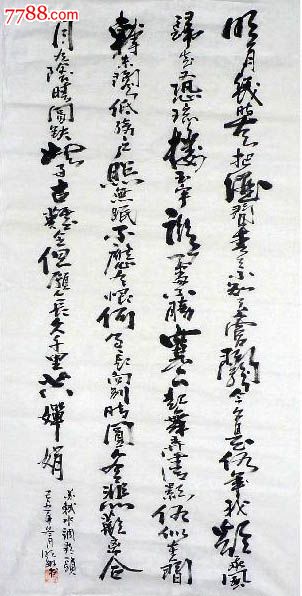 7788.com
明月幾時有把酒問青天不知天上宮闕今夕是何年我欲乘風
歸去又恐瓊樓玉宇高處不勝寒起舞弄清影何似在人間
轉朱閣低綺戶照無眠不應有恨何事長向別時圓人有悲歡離合
月有陰晴圓缺此事古難全但願人長久千里共嬋娟
蘇軾水調歌頭